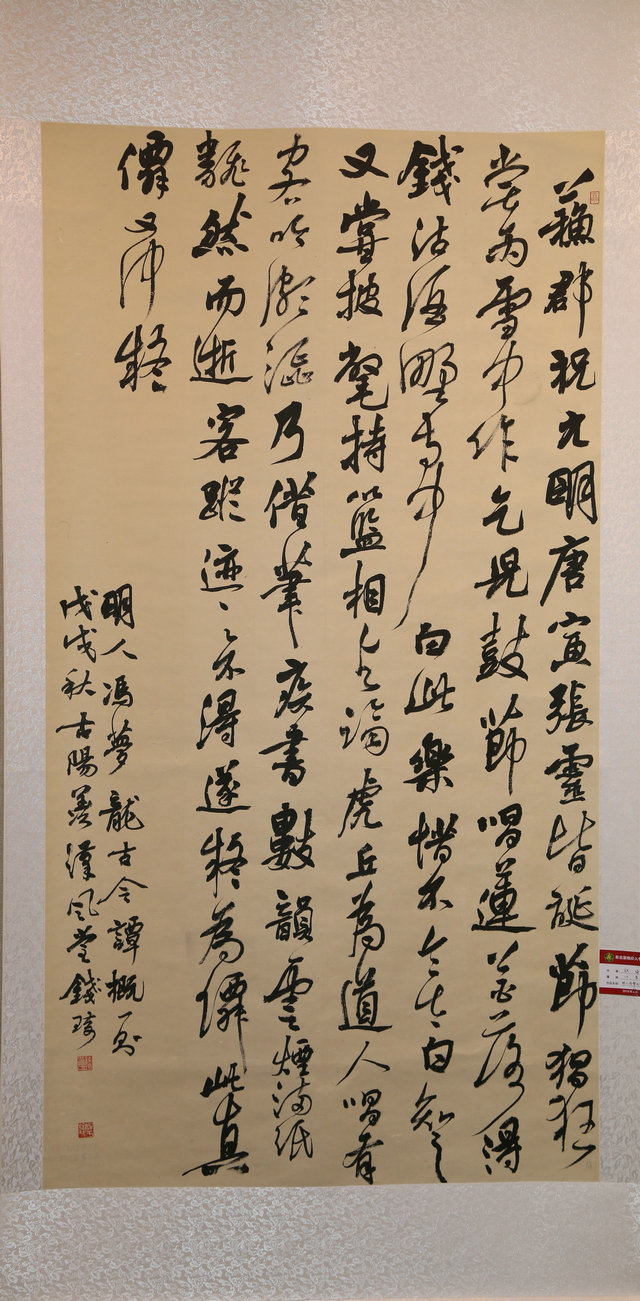 蘇郡祝允明唐寅張靈皆誕節猖狂
嘗爲雪中作乞兒鼓節唱蓮花落得
錢沽酒野寺中曰此樂惜不令太白知之
又嘗披氅持籃相與踏虎丘為道人唱有
客吟頗澀乃借筆疾書數韻雲煙滿紙
飄然而逝客蹤迹之不得遂疑為僊此真
僊又何疑
明人馮夢龍古今譚概一則
戊戌秋古陽羨漢風堂錢琦